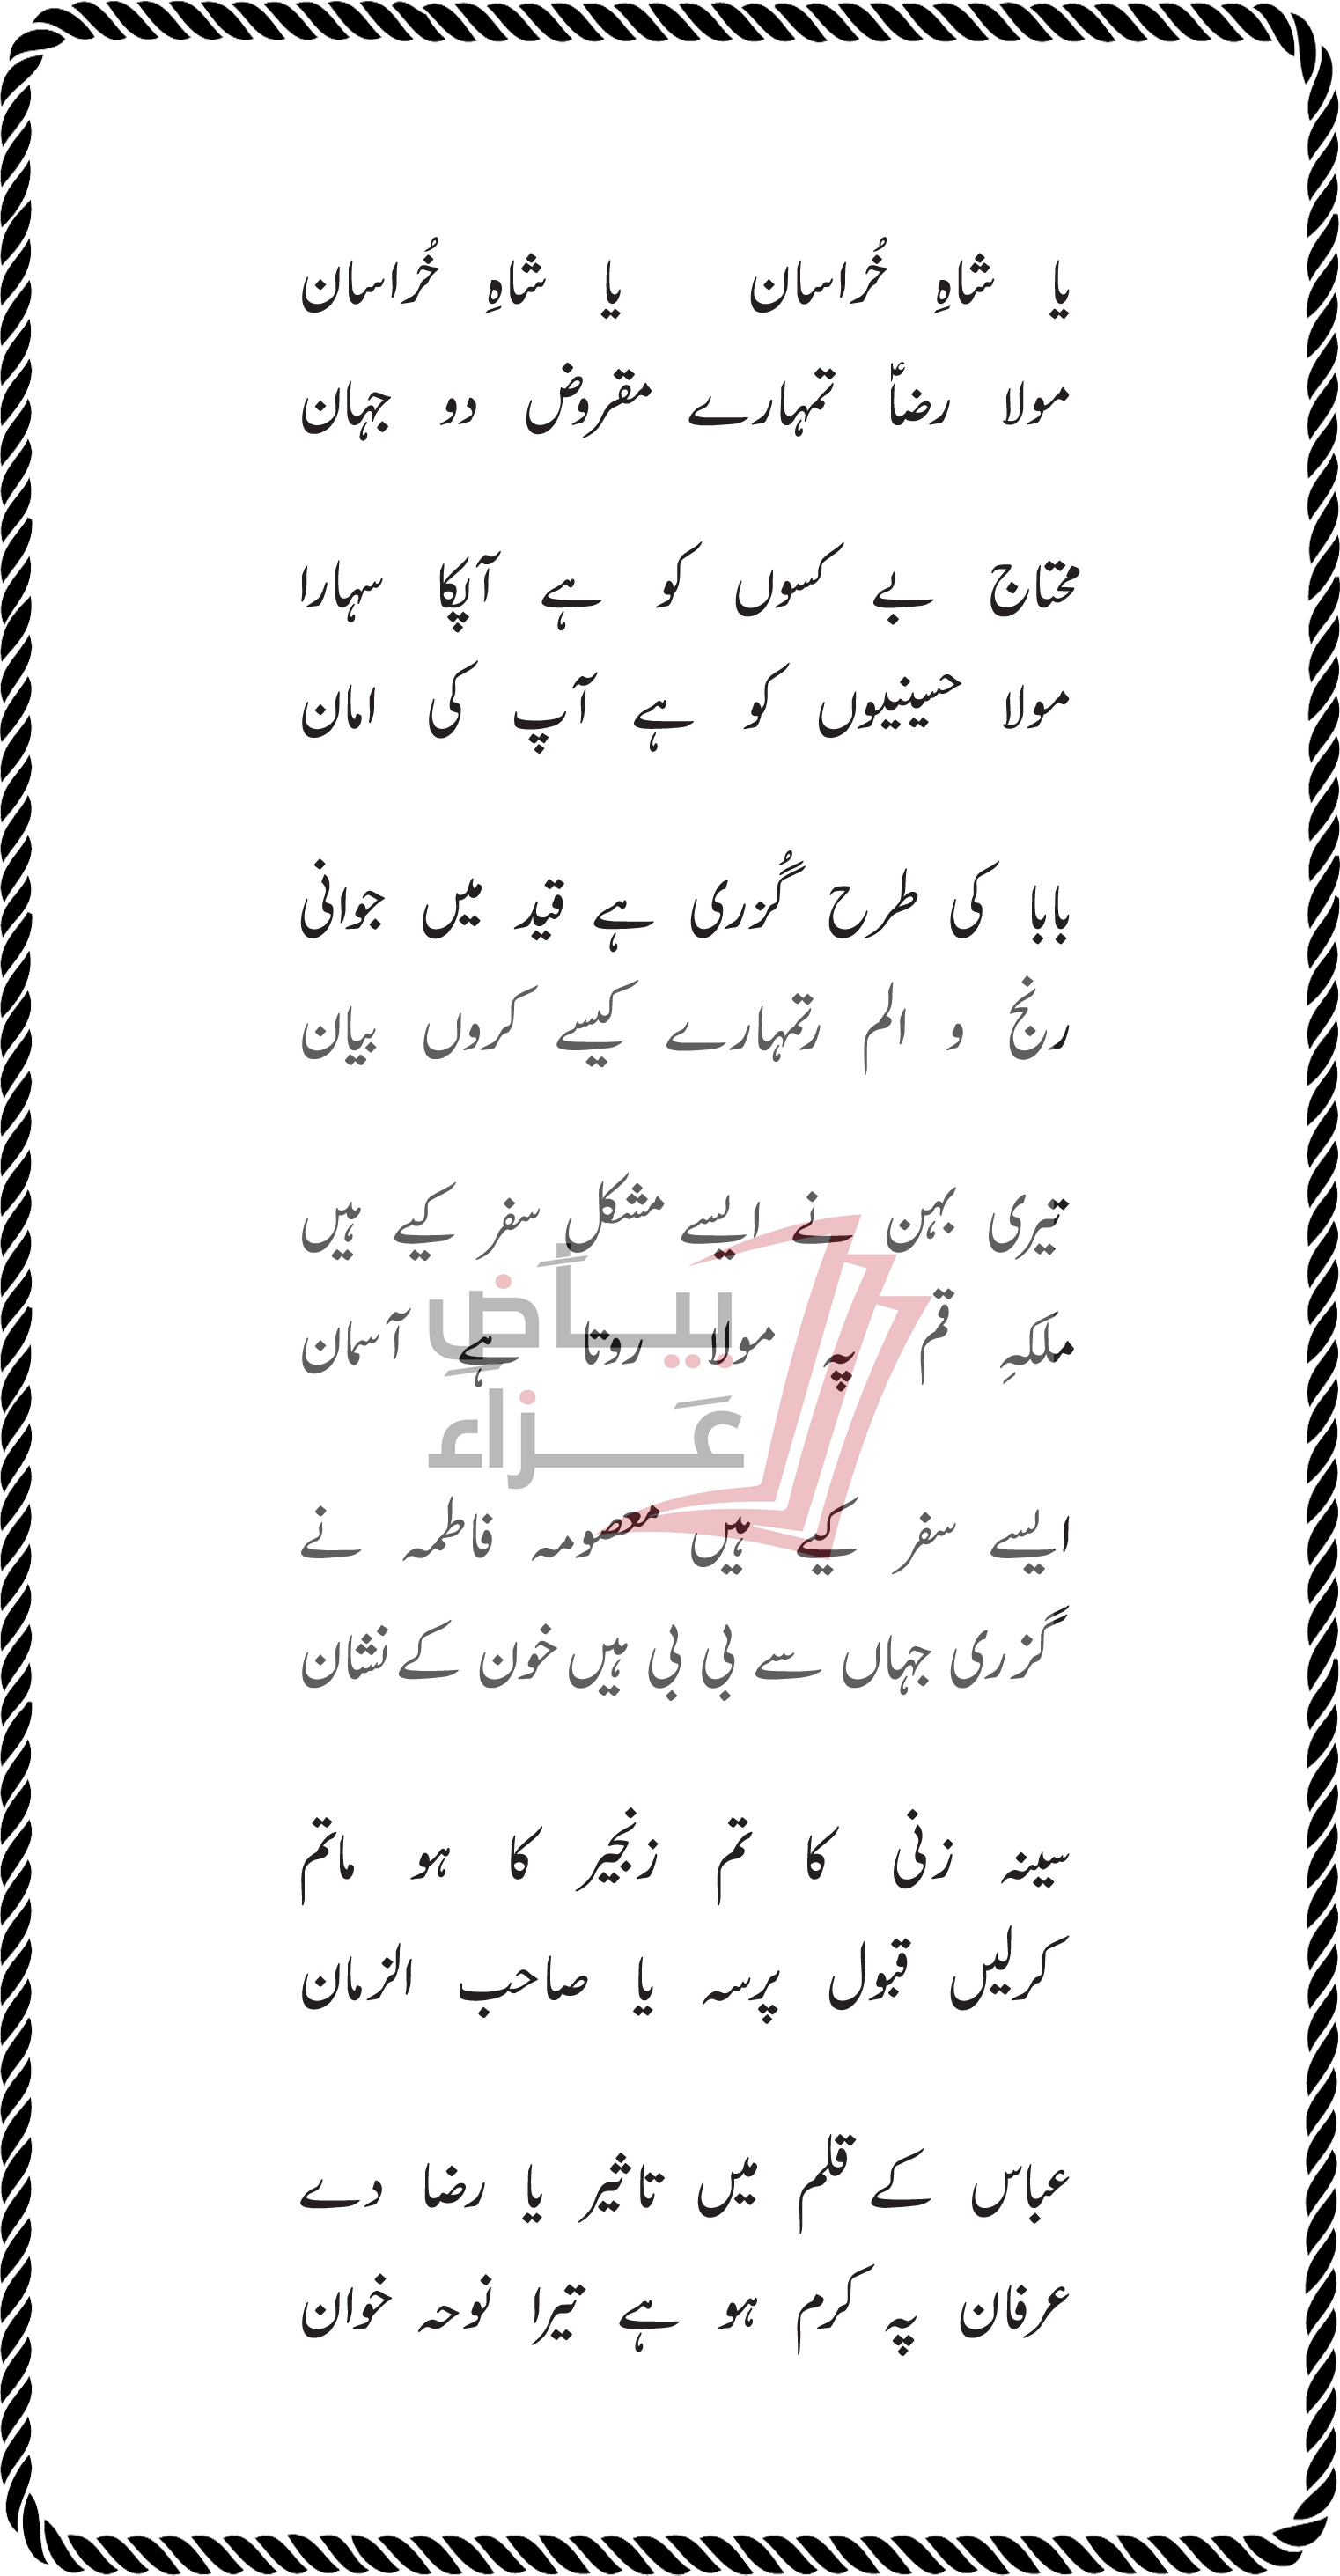 یا شاہِ خُراسان یا شاہِ خُراسان
مولا رضاؑ تمہارے مقروض دو جہان
محتاج بے کسوں کو ہے آپکا سہارا
مولا حسینیوں کو ہے آپ کی امان
بابا کی طرح گُزری ہے قید میں جوانی
رنج و الم رتمہارے کیسے کروں بیان
تیری بہن نے ایسے مشکل سفر کیے ہیں
ملکہِ قم پہ مولا روتا ہے آسمان
بیاضِ
عَزاء
ایسے سفر کیے ہیں معصومہ فاطمہ نے
گزری جہاں سے بی بی ہیں خون کے نشان
سینہ زنی کا تم زنجیر کا ہو ماتم
کرلیں قبول پرسہ یا صاحب الزمان
عباس کے قلم میں تاثیر یا رضا دے
عرفان پہ کرم ہو ہے تیرا نوحہ خوان